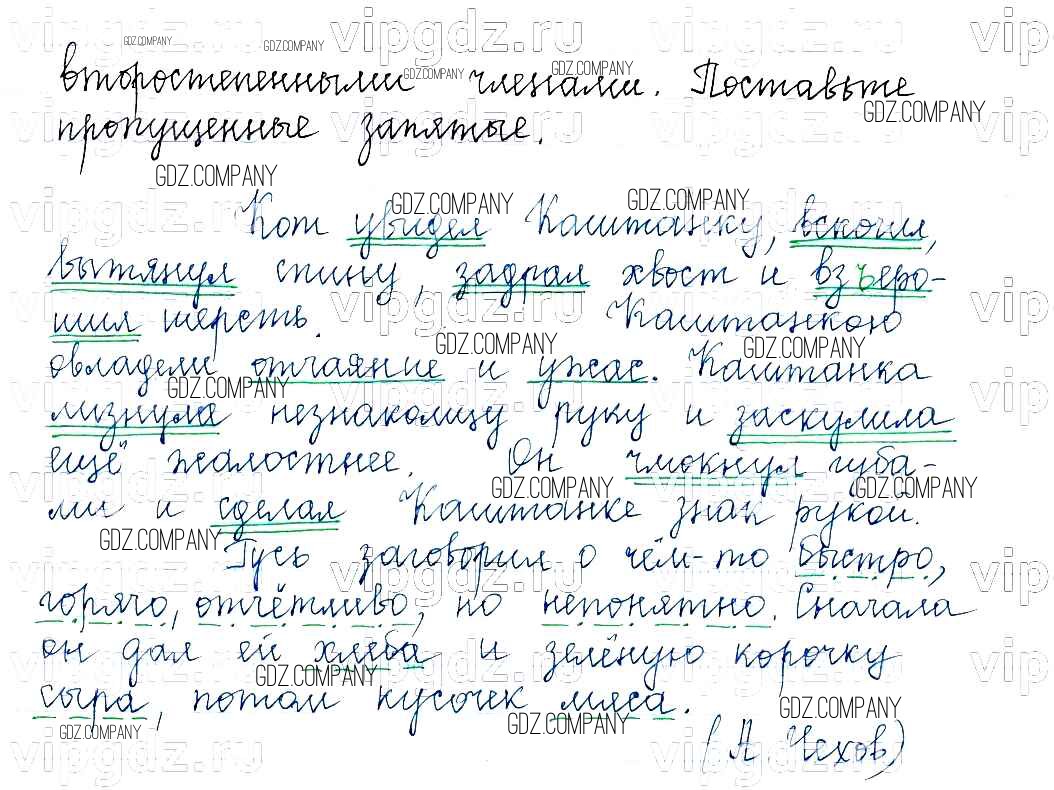 второстепенными членами. Поставьте
пропущенные запятые.
Кот увидел Каштанку, вскочил,
вытянул спину, задрал хвост и взъеро-
шил шерсть. Каштанкою
овладели отчаяние и ужас. Каштанка
лизнула незнакомцу руку и заскулила
ещё жалостнее. Он чмокнул губа-
ми и сделал Каштанке знак рукой.
Гусь заговорил о чём-то быстро,
горячо, отчётливо, но непонятно. Сначала
он дал ей хлеба и зелёную корочку
сыра, потом кусочек мяса.
(А. Чехов)